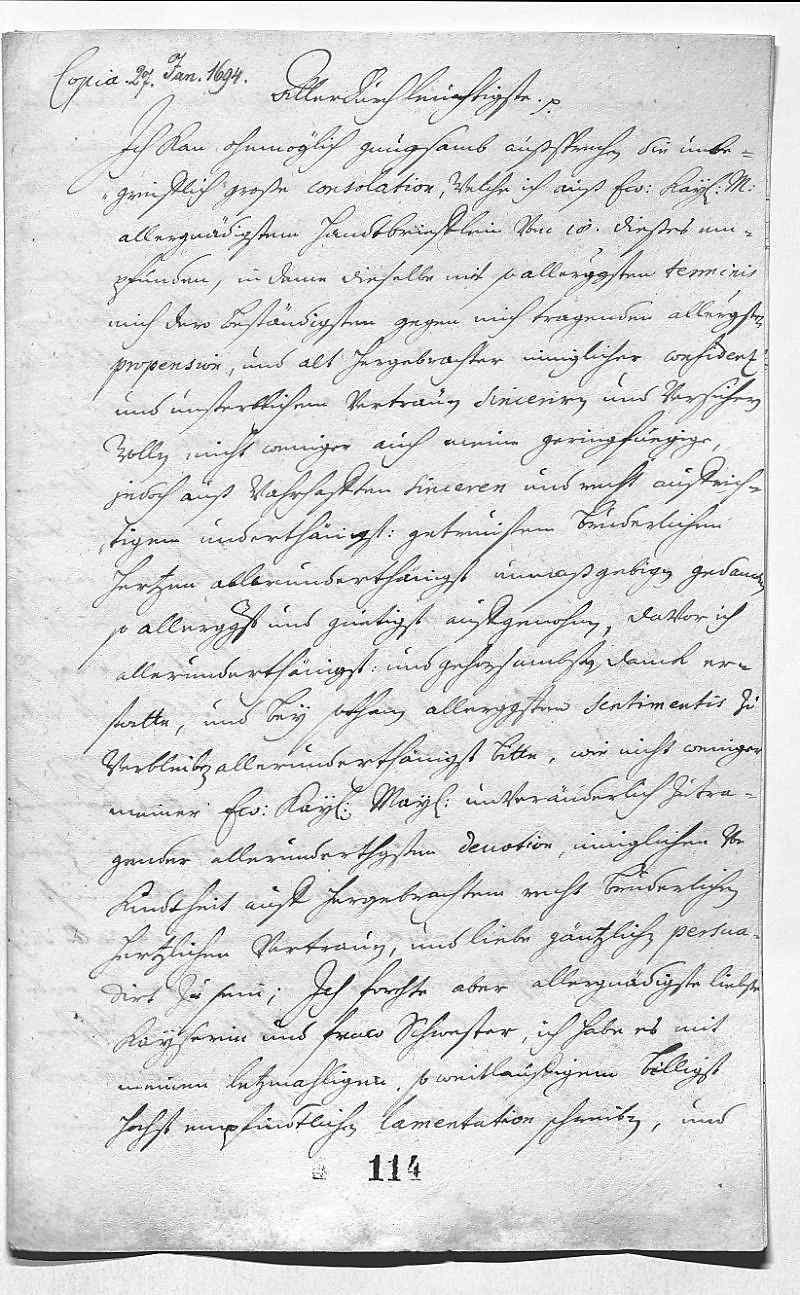 Copia. 27. Jan. 1694.
Allerdurchleuchtigste. p.
Ich kan ohnmöglich gnugsamb außsprechen die unbe-
greifflich große consolation, welche ich auß Ew: Kayl: M:
allergnädigstem Handtbriefflein vom 18. dießes em-
pfunden, in deme dieselbe mit so allergdgsten terminis
mich dero beständigsten gegen mich tragenden allergdgsten
propension, und alt hergebrachter inniglicher confidenz
und unsterblichem vertrauen sinceriren und versichern
wollen, nicht weniger auch meine geringfuegige,
jedoch auß wahrhafften sinceren und recht auffrich-
tigem underthänigst: getreuistem brüderlichem
Hertzen allerunderthänigst unmaßgebige gedancken
so allergdgst und güetigst auffgenohmen, davor ich
allerunderthänigst: und gehorsambsten danck er-
statte, und bey solchen allergdgsten sentimentis zu
verbleiben allerunderthänigst bitte, wie nicht weniger
meiner Ew: Kayl: Mayl: unveränderlich zutra-
gender allerunderthgsten devotion, inniglichen von
Kindtheit auff hergebrachtem recht brüderlichen
hertzlichen vertrauen, und liebe gäntzlich persua-
dirt zu sein; Ich forchte aber allergnädigste liebste
Kayserin und fraw Schwester, ich habe es mit
meinen letzmahligen, so weitläuffigem billigst
höchst empfindtlichen lamentation schreiben, und
114